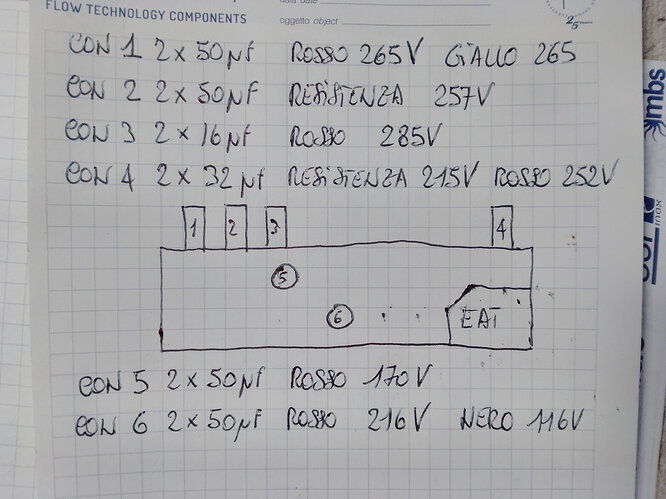 FLOW TECHNOLOGY COMPONENTS
oggetto object
CON 1 2 x 50 µf ROSSO 265V GIALLO 265
CON 2 2 x 50 µf RESISTENZA 257V
CON 3 2 x 16 µf ROSSO 285V
CON 4 2 x 32 µf RESISTENZA 215V ROSSO 252V
1 2 3 4
5
6 EAT
CON 5 2 x 50 µf ROSSO 170V
CON 6 2 x 50 µf ROSSO 216V NERO 116V
mbs